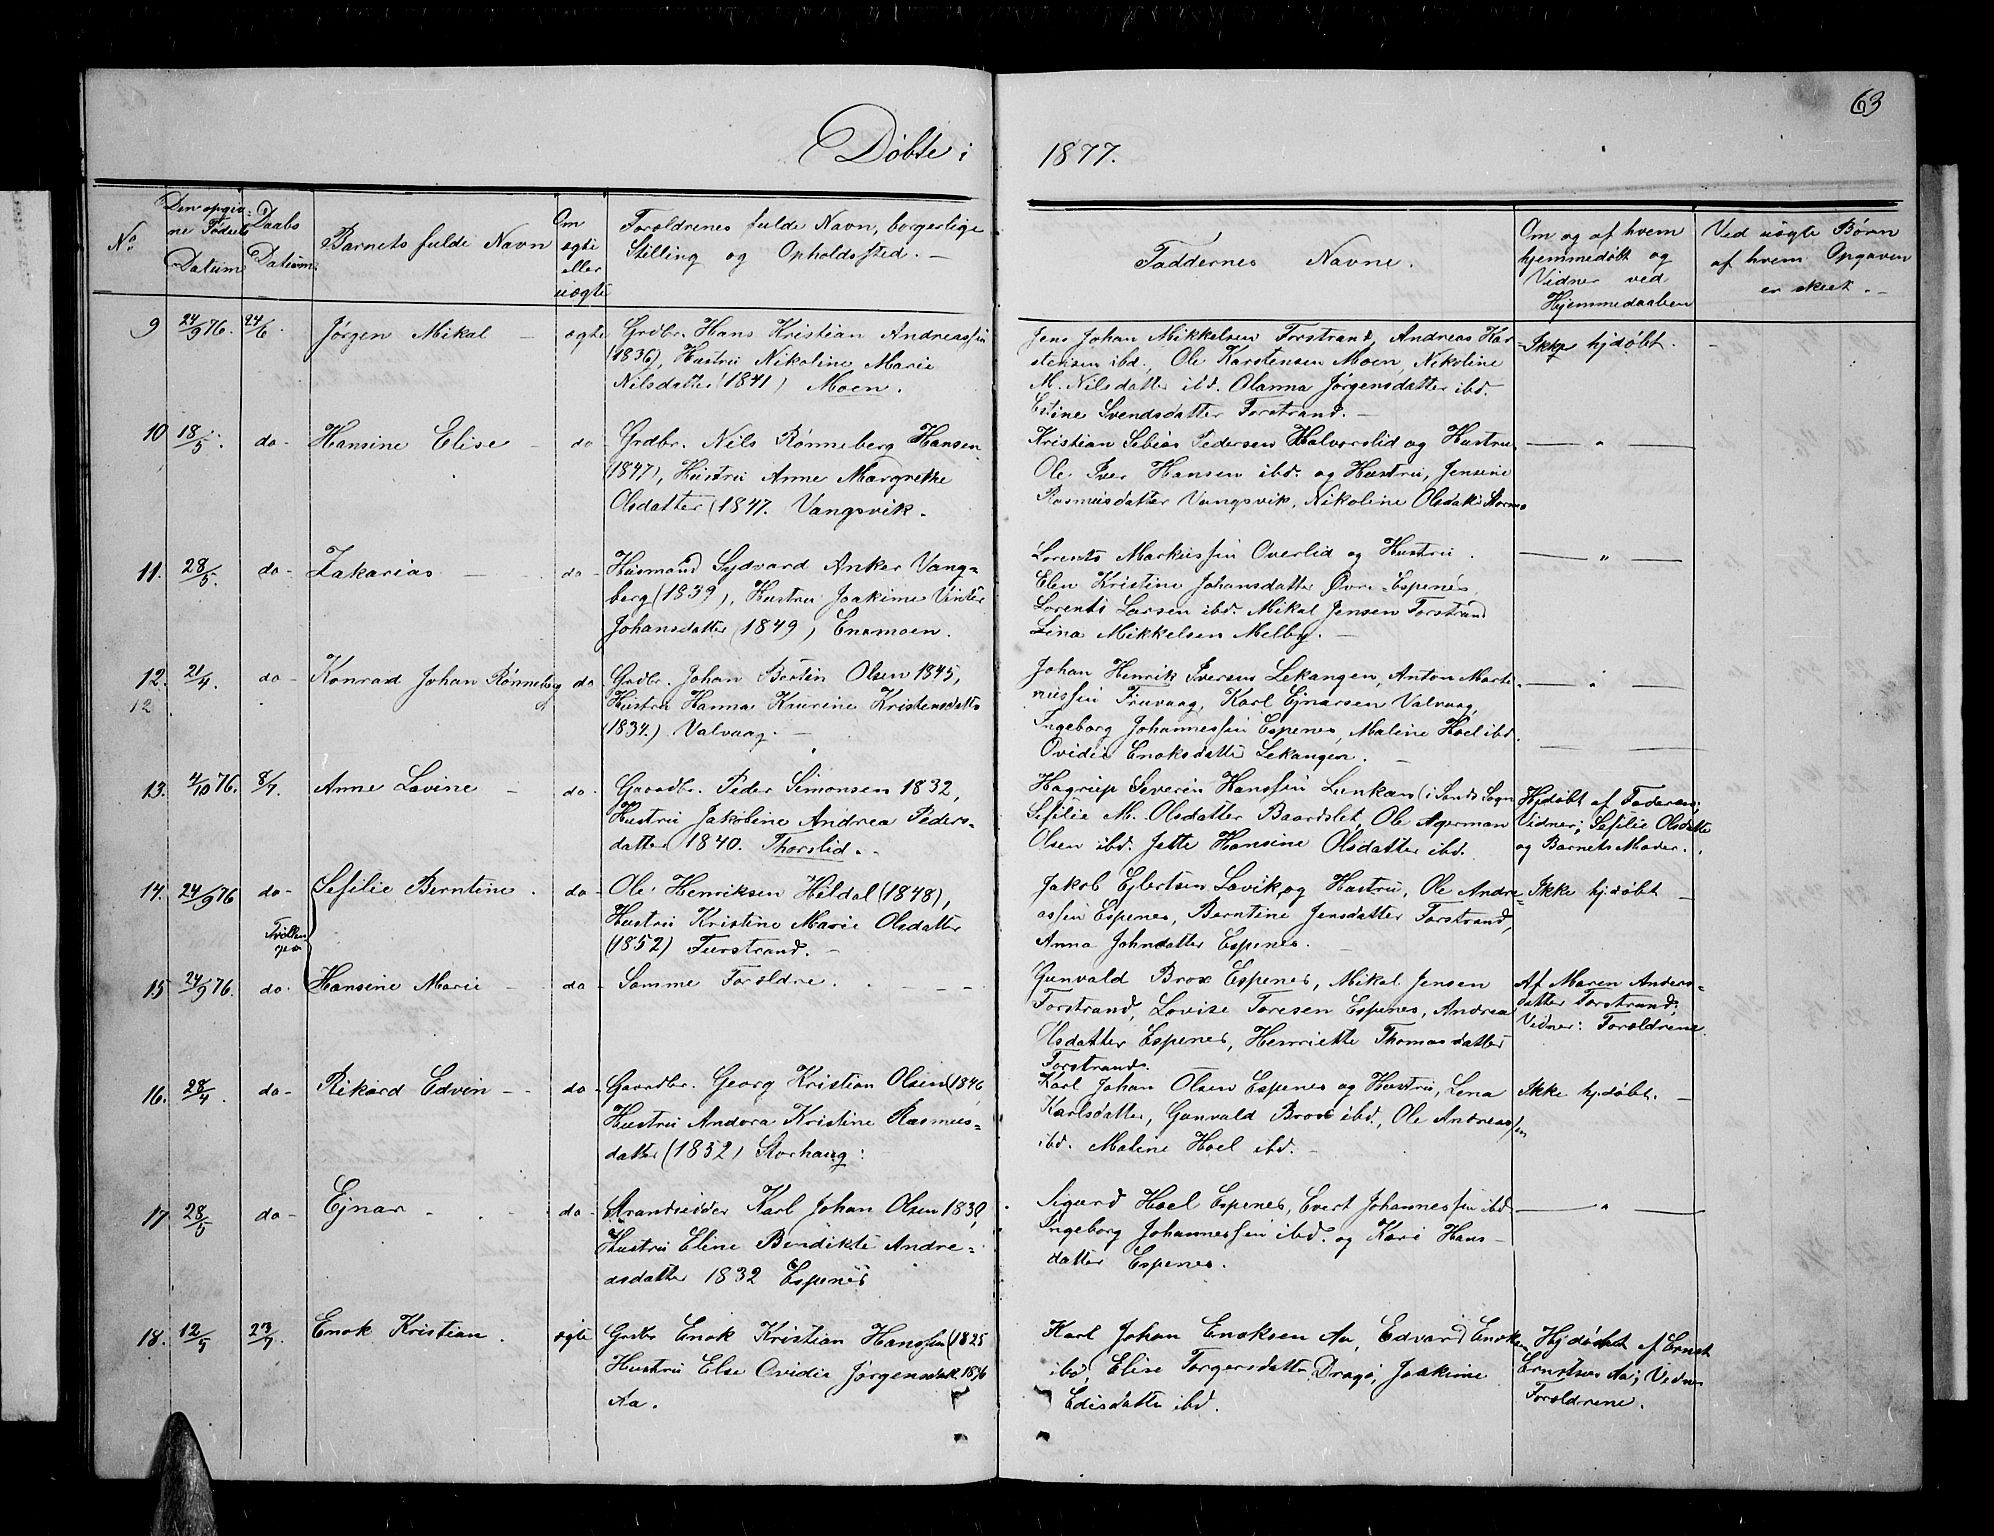 63
Døbte i 1877.
No
Den opgiv-
ne Fødsels
Datum
Daabs
Datum
Barnets fulde Navn
Om
ægte
eller
uægte
Forældrenes fulde Navn, borgerlige
Stilling og Opholdssted. —
Faddernes Navne.
Om og af hvem
hjemmedøbt og
Vidner ved
Hjemmedaaben
Ved uægte Børn
af hvem Opgaven
er skeet. —
9 24/9 76. 24/6. Jørgen Mikal — ægte
Grdbr. Hans Kristian Andreassen
(1836), Hustru Nikoline Marie
Nilsdatter (1841) Moen.
Jens Johan Mikkelsen Forstrand, Andreas Kar-
stensen ibd., Ole Karstensen Moen, Nikoline
M. Nilsdatter ibd. Olanna Jørgensdatter ibd.
Svendsdatter Forstrand. —
Ikke hjdøbt. —
10 18/5. do — Hansine Elise — do —
Grdbr. Nils Rønneberg Hansen
(1847), Hustru Anne Margrethe
Olsdatter (1847. Vangsvik.
Kristian Sebias Pedersen Halvorslid og Hustru,
Ole Iver Hansen ibd. og Hustru, Jensine
Rasmusdatter Vangsvik, Nikoline Olsdat.
— " —
11. 28/5. do — Zakarias — do —
Husmand Sydvard Anker Vang-
berg (1839), Hustru Joakime Vinter
Johansdatter (1849) Enamoen.
Lorents Markussen Overlid og Hustru.
Elen Kristine Johansdatter Øvre-Espenes,
Lorents Larsen ibd. Mikal Jensen Forstrand
Lina Mikkelsen Melby. —
— " —
12. 21/4. do — Konrad Johan Rønneberg do
12
Grdbr. Johan Bertin Olsen 1845,
Hustru Hanna Kaurine Kristensdatter
(1834.) Valvaag. —
Johan Henrik Iversen Lekangen, Anton Marti-
nussen Fruvaag, Karl Ejnarsen Valvaag,
Ingeborg Johannessen Espenes, Maline Hoel ibd.
Ovidie Enoksdatter Lekangen. —
— " —
13. 4/10 76. 8/7. Anne Lovine — do.
Gaardbr. Peder Simonsen 1832,
Hustru Jakobine Andrea Peders-
datter 1840. Thorslid. —
Hagrup Severin Hanssen Lunkan (i Sands Sogn
Sefilie M. Olsdatter Baardslet, Ole Agerman
Olsen ibd. Jette Hansine Olsdatter ibd.
Hjdøbt af Faderen;
Vidner; Sefilie Olsdatter
og Barnets Moder.
14. 24/9 76 do — Sefilie Berntine. do —
Tvillin
ger
Ole Henriksen Hildal (1848),
Hustru Kristine Marie Olsdatter
(1852) Furstrand. —
Jakob Ejlertsen Lovik og Hustru, Ole Andre-
assen Espenes, Berntine Jensdatter Forstrand,
Anna Johndatter Espenes. —
Ikke hjdøbt —
15 24/9 76. do. Hansine Marie — do —
Samme Forældre. —
Gunvald Brox Espenes, Mikal Jensen
Forstrand, Lovise Toresen Espenes, Andrea
Olsdatter Espenes, Henriette Thomasdatter
Forstrand.
Af Maren Anders-
datter Forstrand;
Vidner: Forældrene.
16. 28/4. do — Rikard Edvin — do —
Gaardbr. Georg Kristian Olsen (1846,
Hustru Andora Kristine Rasmus-
datter (1852) Storhaug:
Karl Johan Olsen Espenes og Hustru, Lena
Karlsdatter, Gunvald Brox ibd., Ole Andreassen
ibd. Maline Hoel ibd. —
Ikke hjdøbt. —
17 28/5 do — Ejnar — do —
Strandsidder Karl Johan Olsen 1830,
Hustru Eline Bendikte Andre-
asdatter 1832 Espenes
Sigurd Hoel Espenes, Evert Johannessen ibd.
Ingeborg Johannessen ibd. og Kari Hans-
datter Espenes.
— " —
18. 12/5 23/7. Enok Kristian. ægte
Grdbr Enok Kristian Hanssen (1825
Hustru Else Ovidie Jørgensdat.
Aa.
Karl Johan Enoksen Aa, Edvard Enoksen
ibd, Elise Torgersdatter Dragø, Joakime
Edisdatter ibd.
Hjdøbt af Ernst
Ernstsen Aa; Vidner
Forældrene.